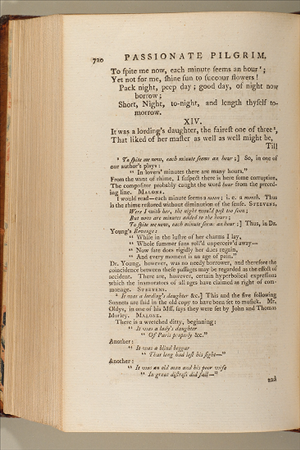 720 PASSIONATE PILGRIM.
To ſpite me now, each minute ſeems an hour ²;
Yet not for me, ſhine ſun to ſuccour flowers!
Pack night, peep day; good day, of night now
borrow;
Short, Night, to-night, and length thyſelf to-
morrow.
XIV.
It was a lording's daughter, the faireſt one of three ³,
That liked of her maſter as well as well might be,
Till
² To ſpite me now, each minute ſeems an hour;] So, in one of
our author's plays:
“ In lovers' minutes there are many hours.”
From the want of rhime, I ſuſpect there is here ſome corruption.
The compoſitor probably caught the word hour from the preced-
ing line. MALONE.
I would read—each minute ſeems a moon; i. e. a month. Thus
is the rhime reſtored without diminution of the ſenſe. STEEVENS.
Were I with her, the night would poſt too ſoon;
But now are minutes added to the hours;
To ſpite me now, each minute ſeems an hour;] Thus, in Dr.
Young's Revenge:
“ While in the luſtre of her charms I lay,
“ Whole ſummer ſuns roll'd unperceiv'd away—
“ Now fate does rigidly her dues regain,
“ And every moment is an age of pain.”
Dr. Young, however, was no needy borrower, and therefore the
coincidence between theſe paſſages may be regarded as the effect of
accident. There are, however, certain hyperbolical expreſſions
which the inamoratos of all ages have claimed as right of com-
monage. STEEVENS.
³ It was a lording's daughter &c.] This and the five following
Sonnets are ſaid in the old copy to have been ſet to muſick. Mr.
Oldys, in one of his MSS. ſays they were ſet by John and Thomas
Morley. MALONE.
There is a wretched ditty, beginning:
“ It was a lady's daughter
“ Of Paris properly &c.”
Another:
“ It was a blind beggar
“ That long had loſt his ſight—”
Another:
“ It was an old man and his poor wife
“ In great diſtreſs did fall—”
and